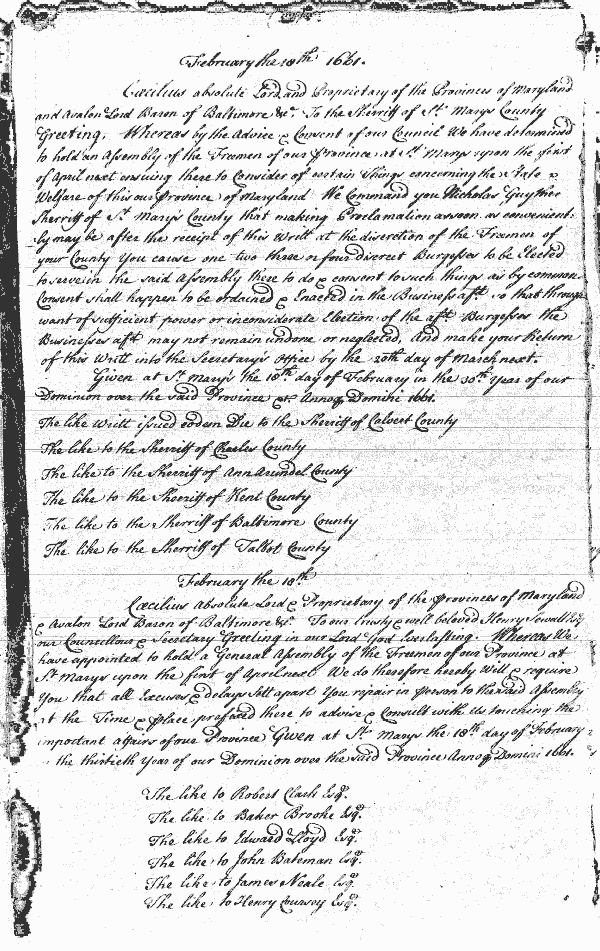 February the 18th 1661.
Cæcilius absolute Lord and Proprietary of the Provinces of Maryland
and Avalon Lord Baron of Baltimore &c. To the Sherriff of St. Marys County
Greeting, Whereas by the Advice & Consent of our Council We have determined
to hold an Assembly of the Freemen of our Province at St. Marys upon the first
of April next ensuing there to Consider of certain things concerning the State &
Welfare of this our Province of Maryland We Command you Nicholas Guyther
Sherriff of St. Mary's County that making Proclamation as soon as convenient-
ly may be after the receipt of this Writt at the discretion of the Freemen of
your County You cause one two three or four discreet Burgesses to be Elected
to serve in the said Assembly there to do & consent to such things as by common
Consent shall happen to be ordained & Enacted in the Business afsd. so that through
want of sufficient power or inconsiderate Election of the afsd. Burgesses the
Businesses afsd. may not remain undone or neglected, And make your Return
of this Writt into the Secretary's Office by the 20th day of March next.
Given at St. Mary's the 18th day of February in the 30th Year of our
Dominion over the said Province &c Annoq Domini 1661.
The like Writt issued eodem Die to the Sherriff of Calvert County
The like to the Sherriff of Charles County
The like to the Sherriff of Ann Arundel County
The like to the Sherriff of Kent County
The like to the Sherriff of Baltimore County
The like to the Sherriff of Talbot County
February the 18th
Cæcilius Absolute Lord & Proprietary of the Provinces of Maryland
& Avalon Lord Baron of Baltimore &c. To our trusty & well beloved Henry Sewall Esqr
our Councillour & Secretary Greeting in our Lord God Everlasting. Whereas We
have appointed to hold a General Assembly of the Freemen of our Province at
St. Marys upon the first of April next We do therefore hereby Will & require
You that all Excuses & delays Sett apart You repair in person to the said Assembly
at the Time & place prefixed there to advise & Consult with Us touching the
important affairs of our Province Given at St. Marys the 18th day of February
the thirtieth Year of our Dominion over the said Province Annoq Domini 1661.
The like to Robert Clark Esqr.
The like to Baker Brooke Esqr.
The like to Edward Lloyd Esqr.
The like to John Bateman Esqr.
The like to James Neale Esqr.
The like to Henry Coursey Esqr.